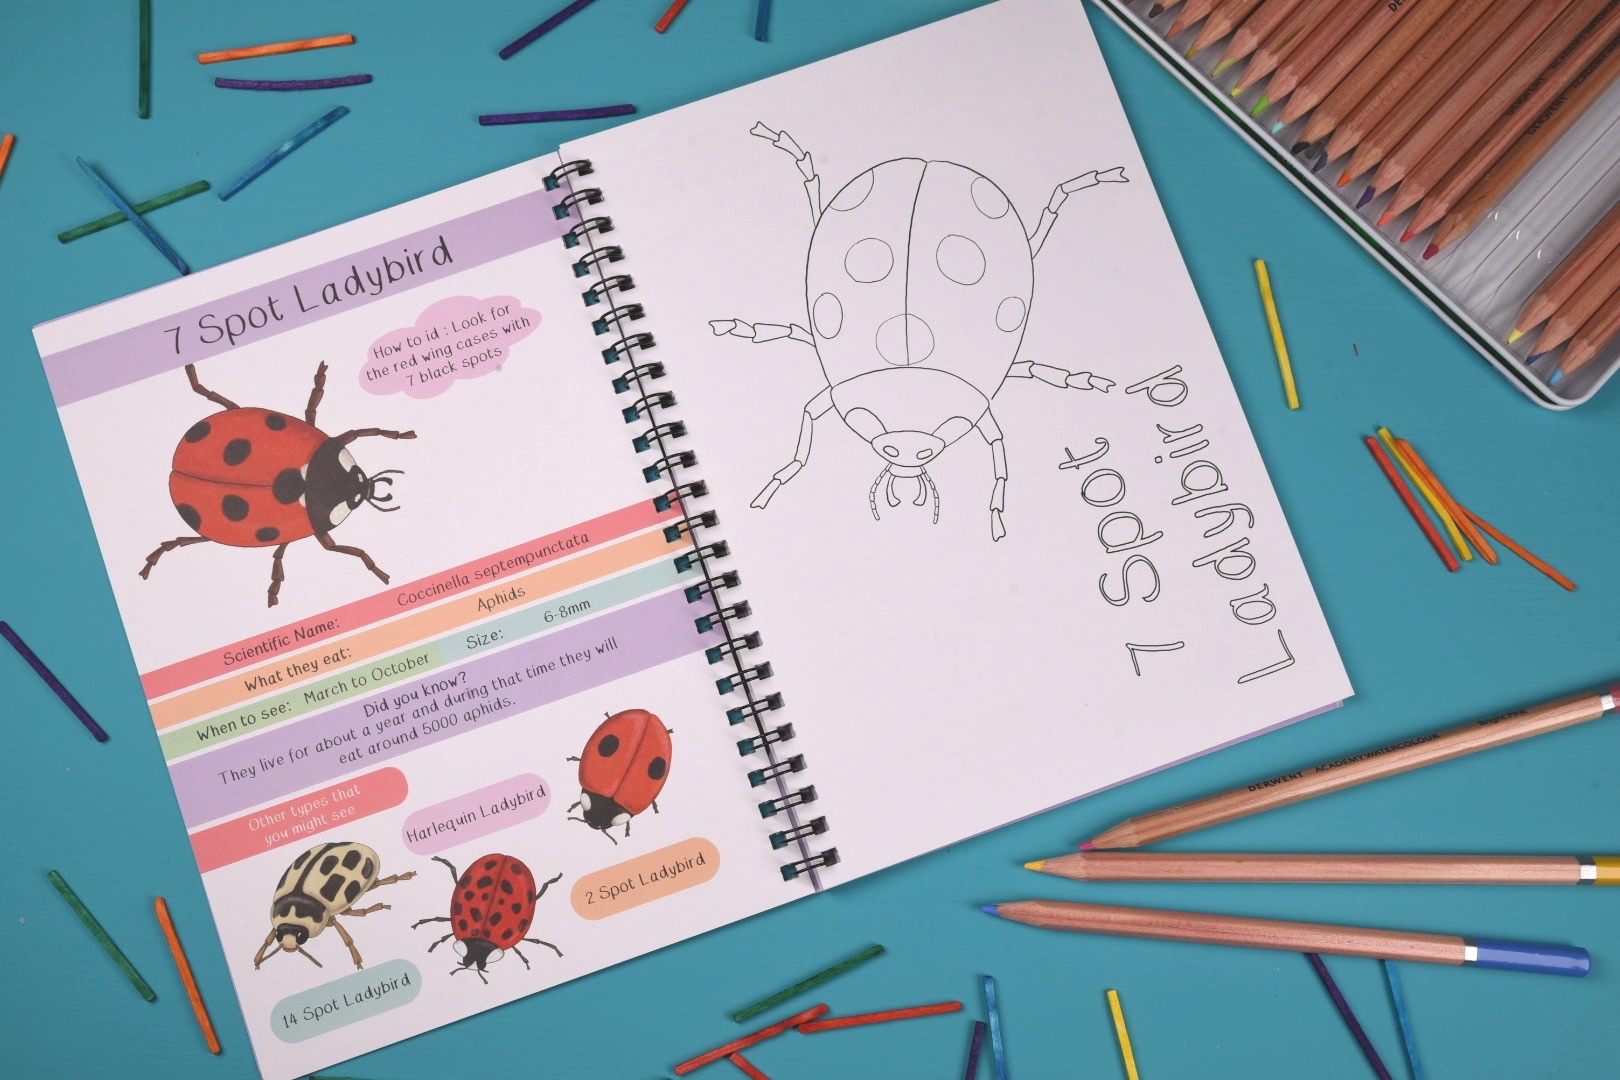 7 Spot Ladybird
How to id : Look for
the red wing cases with
7 black spots
Scientific Name: Coccinella septempunctata
What they eat: Aphids
When to see: March to October Size: 6-8mm
Did you know?
They live for about a year and during that time they will
eat around 5000 aphids.
Other types that
you might see
Harlequin Ladybird
2 Spot Ladybird
14 Spot Ladybird
7 Spot
Ladybird
DERWENT
DERWENT ACADEMY WATERCOLOUR Bright Pink